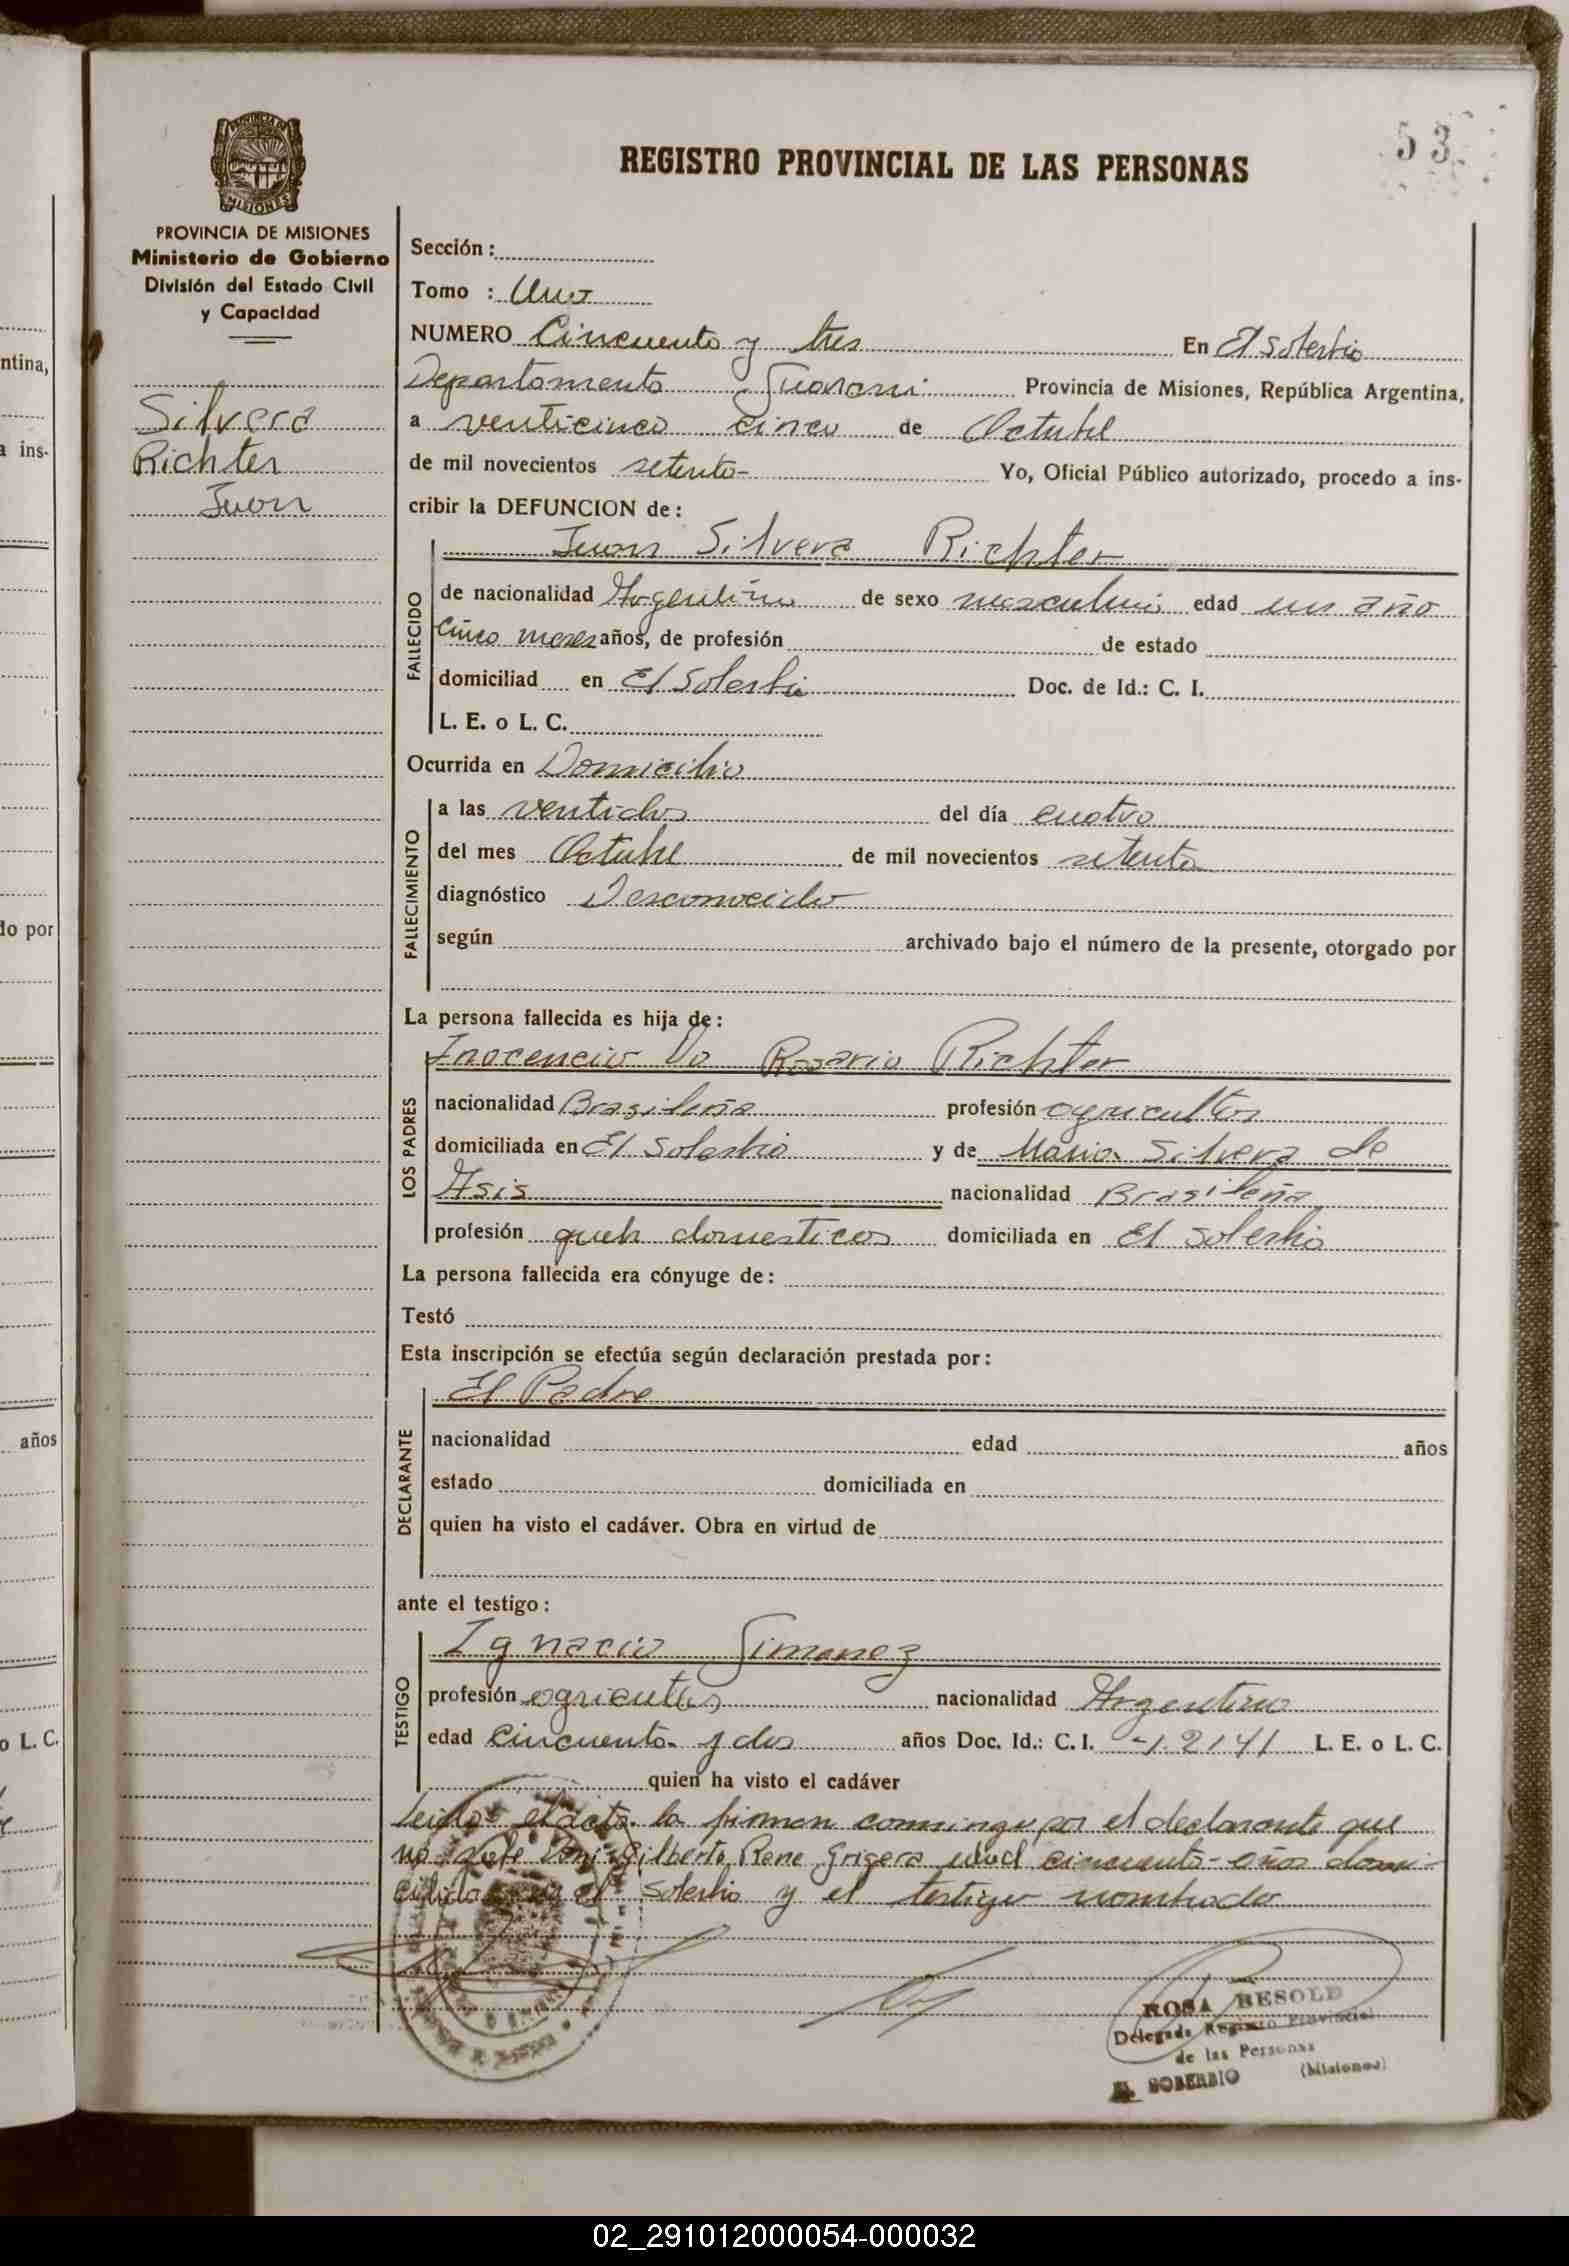 53
REGISTRO PROVINCIAL DE LAS PERSONAS
PROVINCIA DE MISIONES
Ministerio de Gobierno
División del Estado Civil
y Capacidad
Silvera
Richter
Juan
Sección:
Tomo : Uno
NUMERO Cincuenta y tres En El Soberbio
Departamento Guarani Provincia de Misiones, República Argentina,
a venticinco cinco de Octubre
de mil novecientos setenta- Yo, Oficial Público autorizado, procedo a ins-
cribir la DEFUNCION de:
Juan Silvera Richter
FALLECIDO
de nacionalidad Argentina de sexo masculino edad un año
cinco meses años, de profesión de estado
domiciliad en El Soberbio Doc. de Id.: C. I.
L. E. o L. C.
Ocurrida en Domicilio
FALLECIMIENTO
a las ventidos del día cuatro
del mes Octubre de mil novecientos setenta
diagnóstico Desconocido
según archivado bajo el número de la presente, otorgado por
La persona fallecida es hija de:
Inocencio Do Rosario Richter
LOS PADRES
nacionalidad Brasileña profesión agricultor
domiciliada en El Soberbio y de Maria Silvera de
Asis nacionalidad Brasileña
profesión queh domesticos domiciliada en El Soberbio
La persona fallecida era cónyuge de:
Testó
Esta inscripción se efectúa según declaración prestada por:
El Padre
DECLARANTE
nacionalidad edad años
estado domiciliada en
quien ha visto el cadáver. Obra en virtud de
ante el testigo:
Ignacio Gimenez
TESTIGO
profesión agricultor nacionalidad Argentino
edad cincuenta y dos años Doc. Id.: C. I. L. E. o L. C.
quien ha visto el cadáver
Leida el acta la firman conmingo por el declarante que
no sabe Gilberto Rene Grigera edad cincuenta años domi-
ciliado en El Soberbio y el testigo nombrado
ROSA BESOLD
Delegada Registro Provincial
de las Personas
EL SOBERBIO (Misiones)
ntina,
a ins-
do por
años
o L. C.
02_291012000054-000032